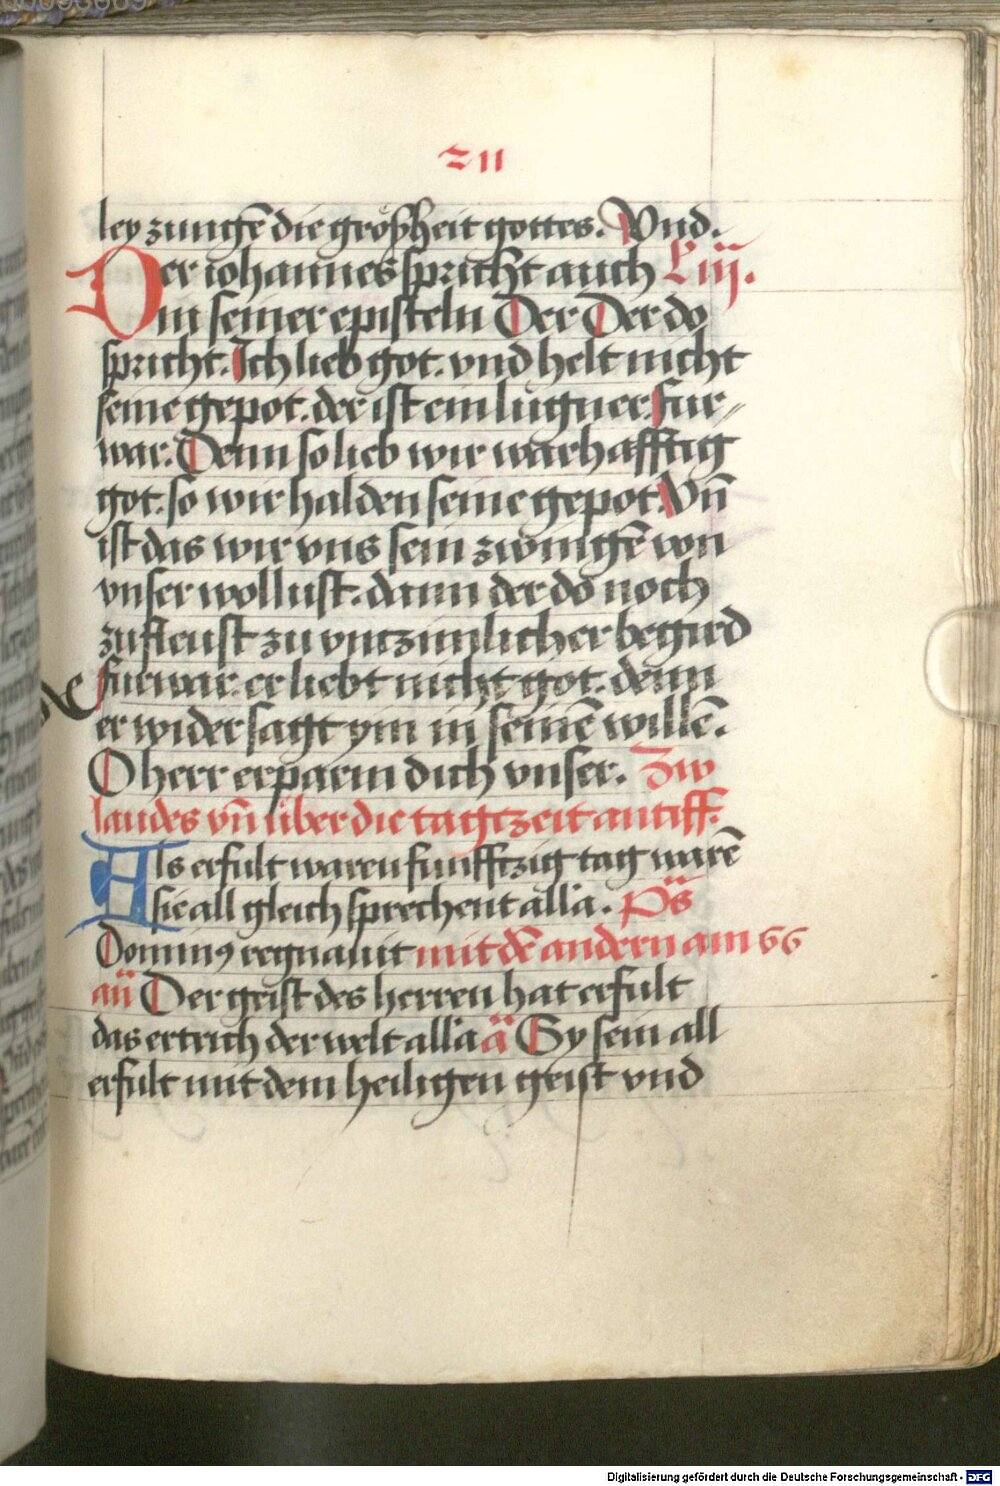 211
ley zungē die großheit gottes. Vnd.
Der iohannes spricht auch L iij.
in seiner episteln Der Der do
spricht. Ich lieb got. vnd helt nicht
seine gepot. der ist ein lugner. fur
war. Denn so lieb wir warhafftig
got. so wir halden seine gepot. Vn̄
ist das wir vns sein zwingē von
vnser wollust. dann der do noch
zufleust zu vnczimlicher begird
furwar. er liebt nicht got. denn
er wider sagt ym in seinē willē.
O herr erparm dich vnser. Zw
laudes vn̄ über die tagczeit antiff.
Als erfult waren funfftzig tag warē
sie all gleich sprechent alla. Ps
Dominꝰ regnauit mit dē andern am 66
an̄ Der geist des herren hat erfult
das ertrich der welt alla ā Sy sein all
erfult mit dem heiligen geist vnd
Digitalisierung gefördert durch die Deutsche Forschungsgemeinschaft - DFG